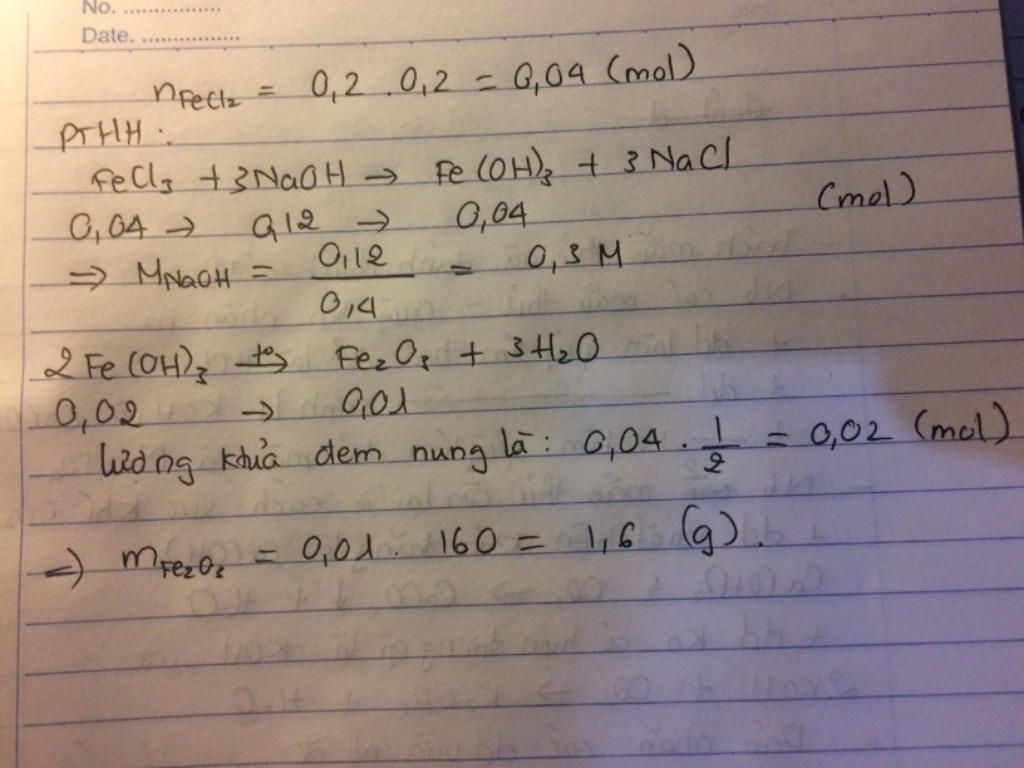 No. ................
Date. ................
nFeCl2 = 0,2 . 0,2 = 0,04 (mol)
PTHH :
FeCl3 + 3NaOH → Fe(OH)3 + 3NaCl
0,04 → 0,12 → 0,04 (mol)
⇒ MNaOH = 0,12/0,4 = 0,3 M
2Fe(OH)3 –t°→ Fe2O3 + 3H2O
0,02 → 0,01
lượng khủa đem nung là : 0,04 . 1/2 = 0,02 (mol)
=) mFe2O3 = 0,01 . 160 = 1,6 (g).